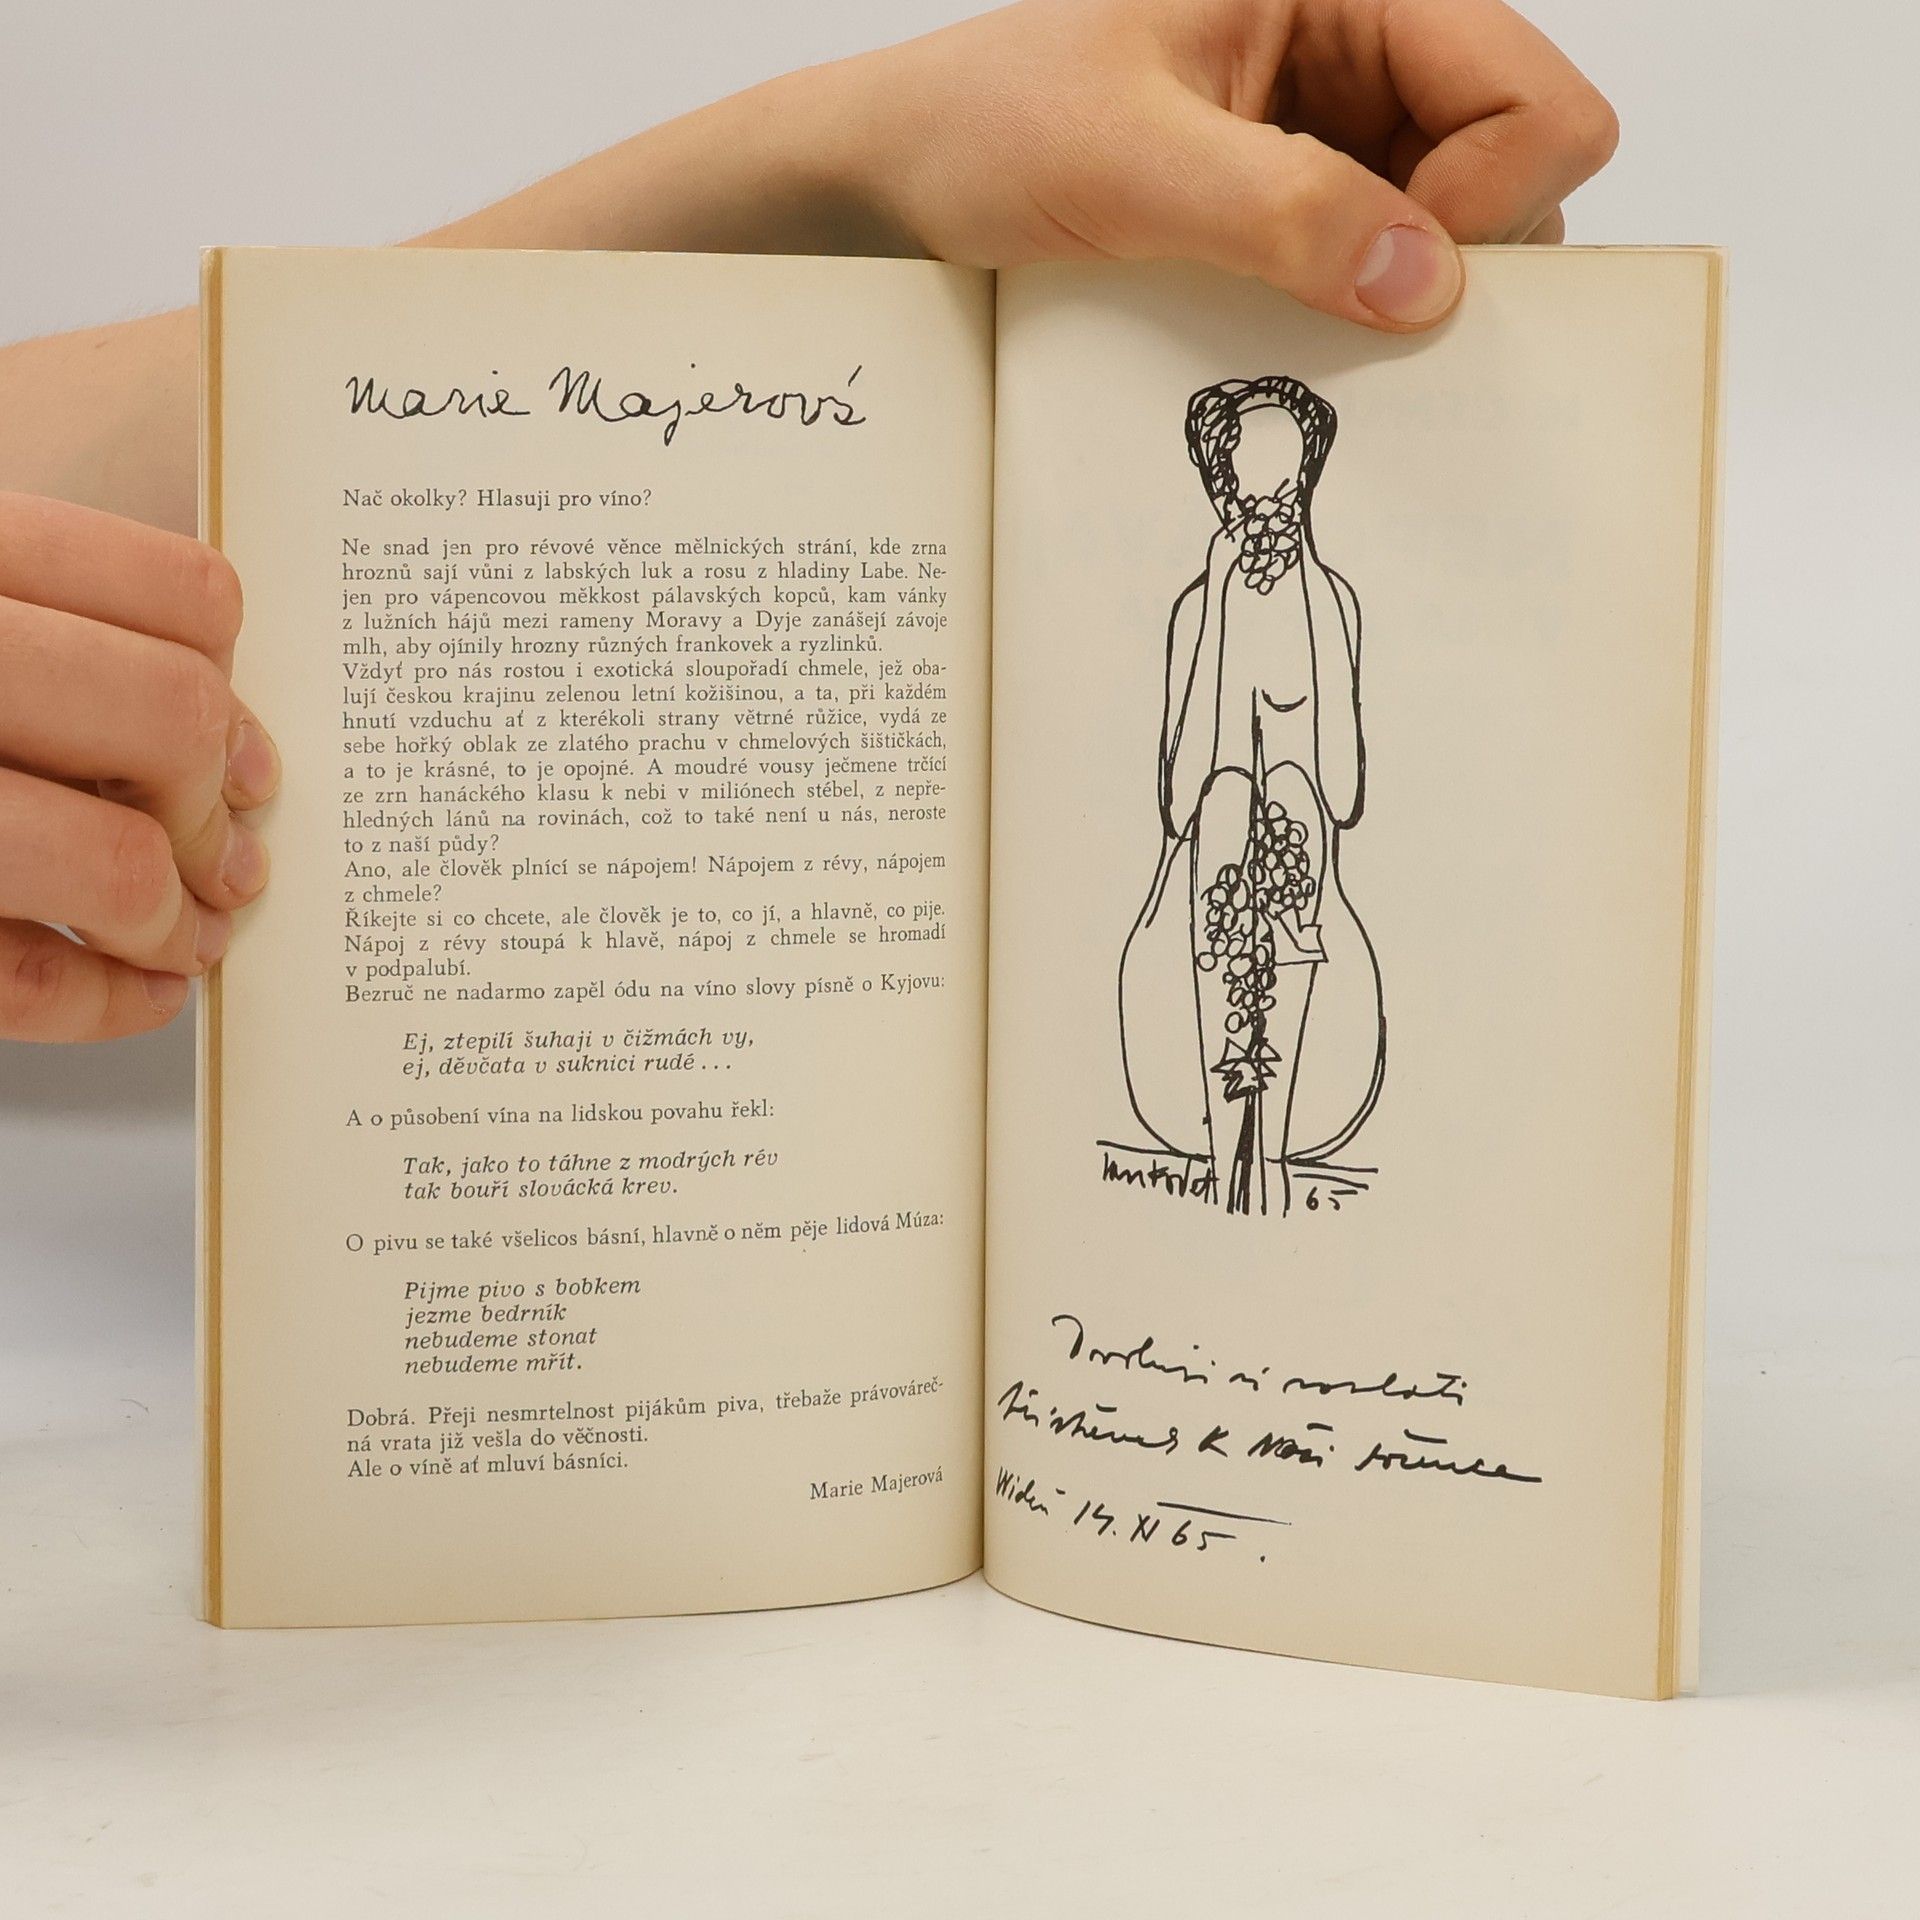 Marie Majerová
Nač okolky? Hlasuji pro víno?
Ne snad jen pro révové věnce mělnických strání, kde zrna
hroznů sají vůni z labských luk a rosu z hladiny Labe. Ne-
jen pro vápencovou měkkost pálavských kopců, kam vánky
z lužních hájů mezi rameny Moravy a Dyje zanášejí závoje
mlh, aby ojínily hrozny různých frankovek a ryzlinků.
Vždyť pro nás rostou i exotická sloupořadí chmele, jež oba-
lují českou krajinu zelenou letní kožišinou, a ta, při každém
hnutí vzduchu ať z kterékoli strany větrné růžice, vydá ze
sebe hořký oblak ze zlatého prachu v chmelových šištičkách,
a to je krásné, to je opojné. A moudré vousy ječmene trčící
ze zrn hanáckého klasu k nebi v miliónech stébel, z nepře-
hledných lánů na rovinách, což to také není u nás, neroste
to z naší půdy?
Ano, ale člověk plnící se nápojem! Nápojem z révy, nápojem
z chmele?
Říkejte si co chcete, ale člověk je to, co jí, a hlavně, co pije.
Nápoj z révy stoupá k hlavě, nápoj z chmele se hromadí
v podpalubí.
Bezruč ne nadarmo zapěl ódu na víno slovy písně o Kyjovu:
Ej, ztepilí šuhaji v čižmách vy,
ej, děvčata v suknici rudé . . .
A o působení vína na lidskou povahu řekl:
Tak, jako to táhne z modrých rév
tak bouří slovácká krev.
O pivu se také všelicos básní, hlavně o něm pěje lidová Múza:
Pijme pivo s bobkem
jezme bedrník
nebudeme stonat
nebudeme mřít.
Dobrá. Přeji nesmrtelnost pijákům piva, třebaže právováreč-
ná vrata již vešla do věčnosti.
Ale o víně ať mluví básníci.
Marie Majerová
65
K
14. XI 65.